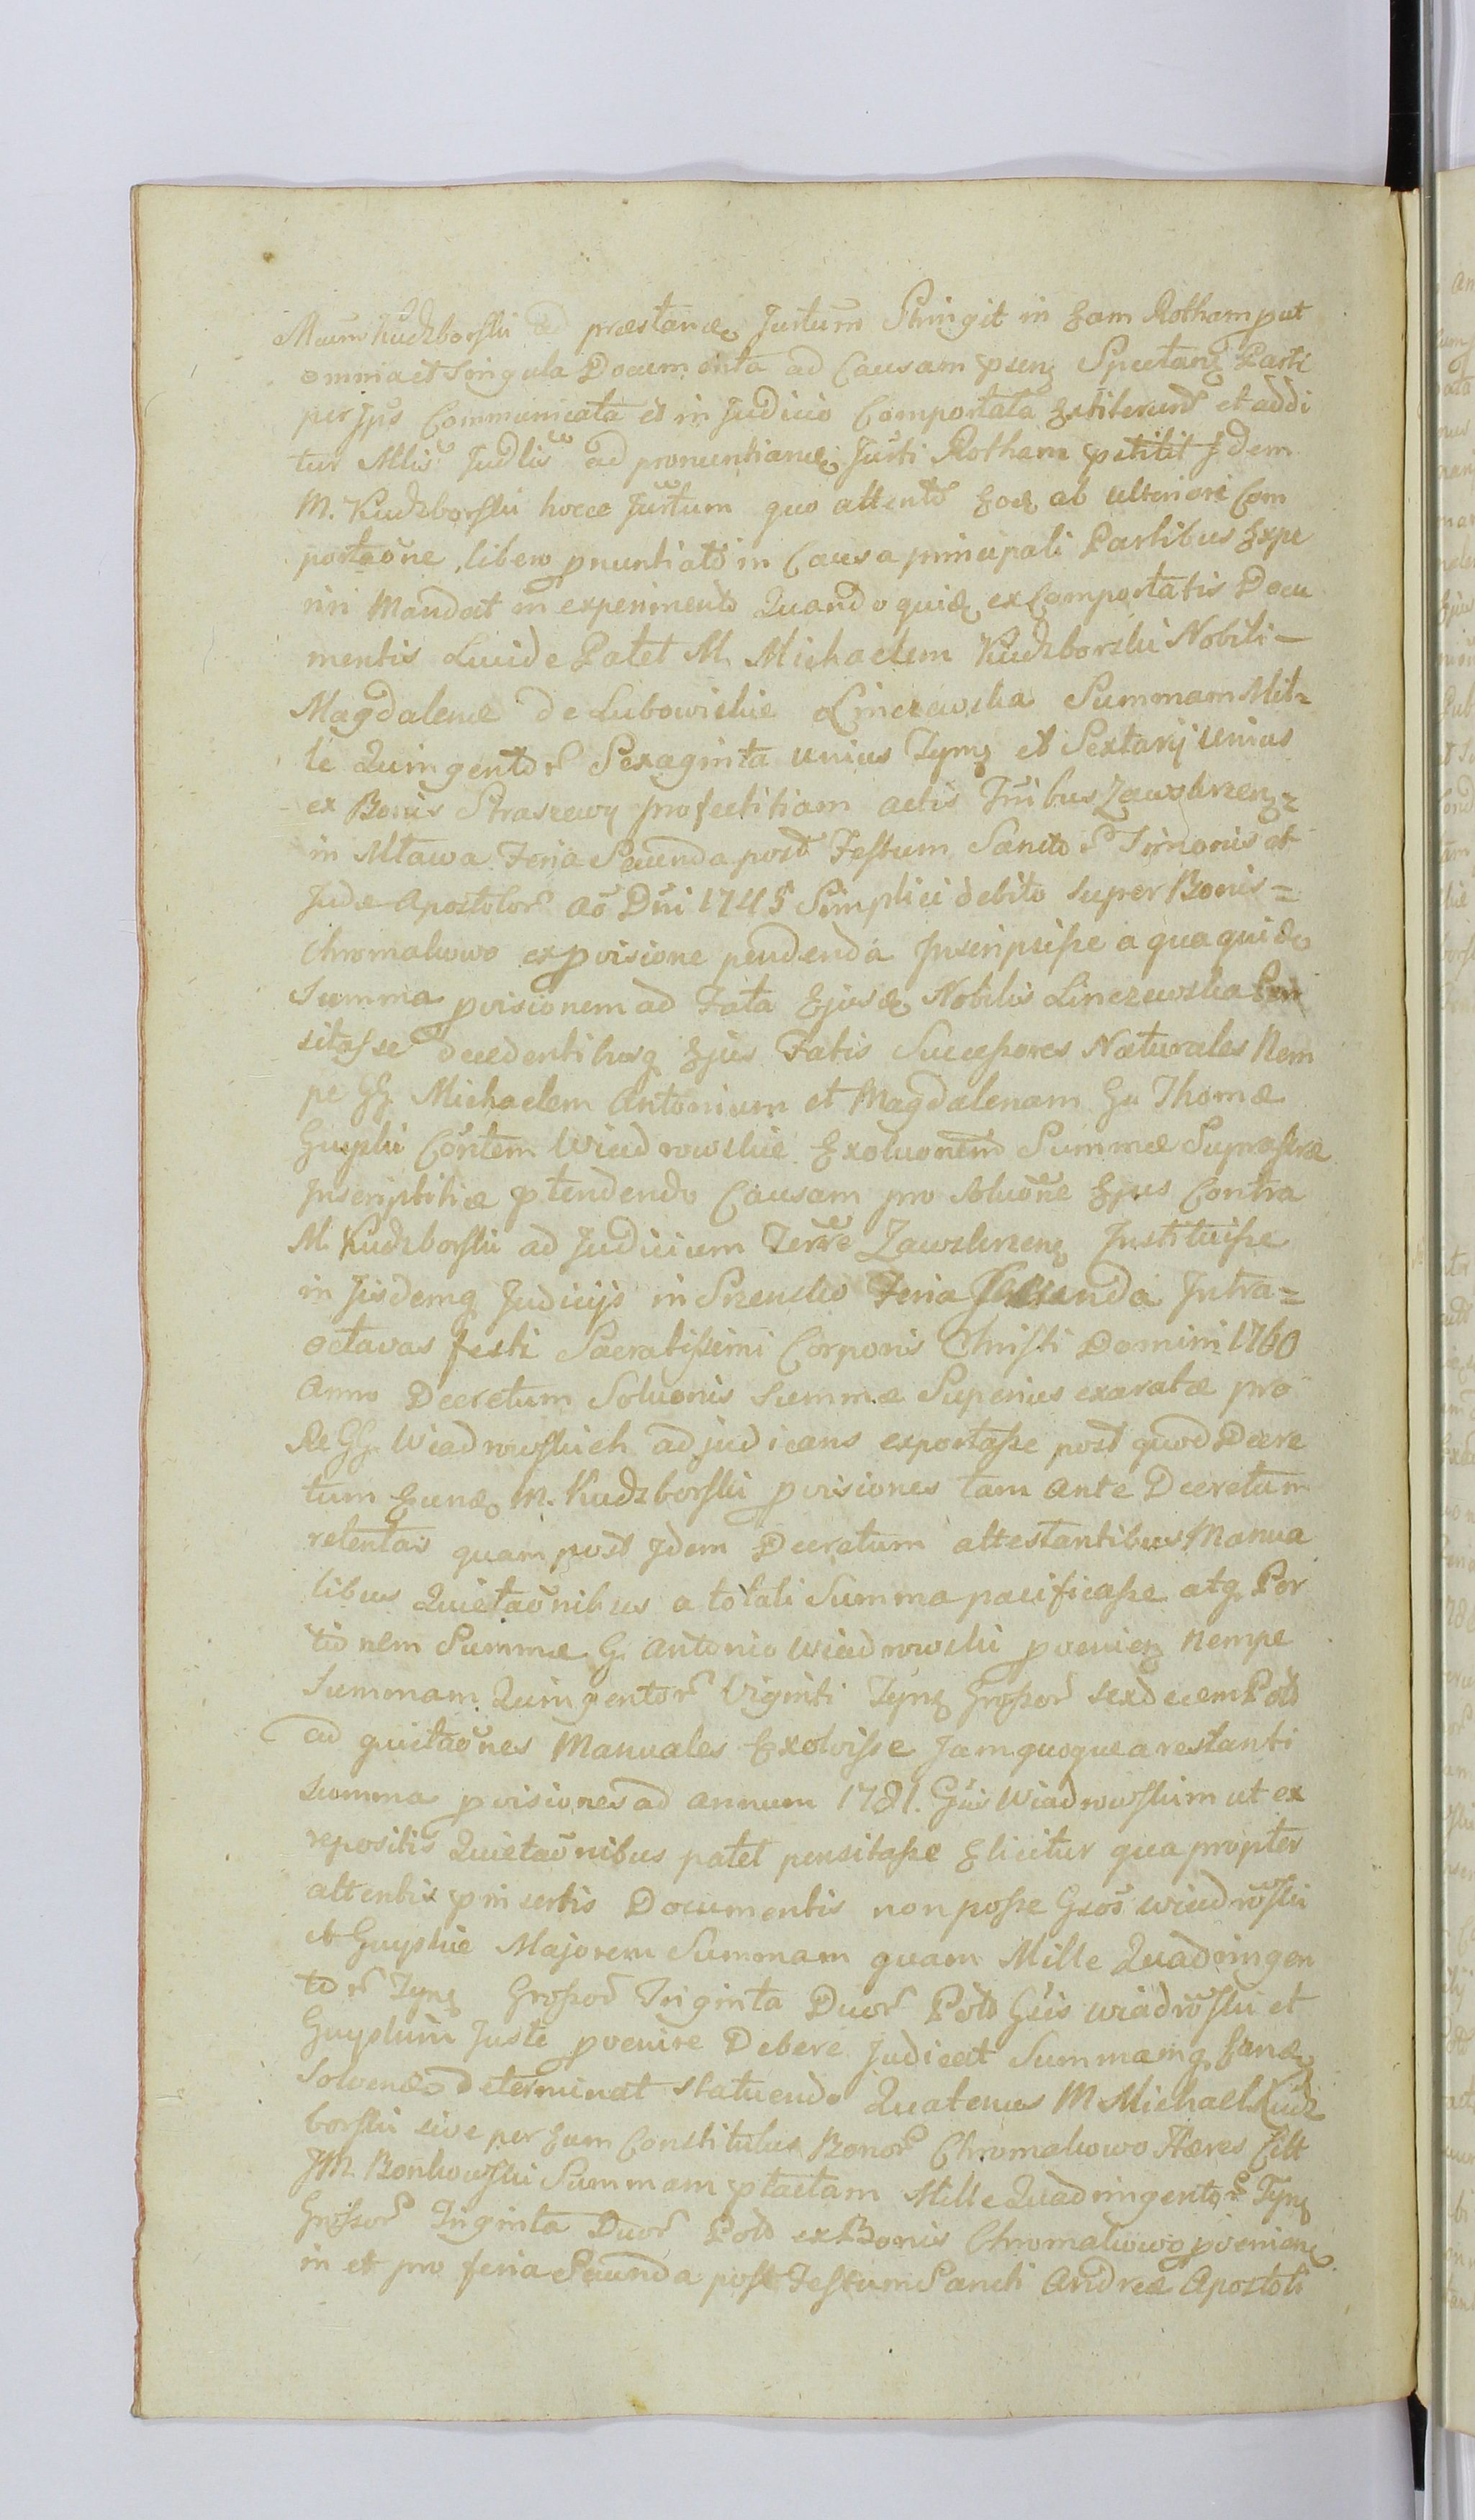 Mcum Kudzborski ad præstand Jurtum Stringit in Eam Rotham put
omnia et singula Documenta ad Causam psenz Spectanz Parti
per Jps Communicata et in Judicio Comportata Extiterunt et addi
tur Mlis Judlis ad pronuntiand Jurti Rotham pstitit Jdem
M. Kudzborski hocce Jurtum quo attento Eod ab ulteriori Com
portaone, libero pnuntiato in Causa principali Partibus Expe
riri Mandat in experimento Quandoquid ex Comportatis Docu
mentis Lucide Patet M. Michaelem Kudzborski Nobili -
Magdalenæ de Lubowiskie Linczewska Summam Mil=
le Quingentor Sexaginta unius Tymf et Sextarij Unius
ex Bonis Straszewy profectitiam actis Tribus Zawskrzenz=
in Mława Feria Secunda post Festum Sanctor Simonis et
Judæ Apostolor Ao Dni 1745 Simplici debito super Bonis =
Chromakowo ex pvisione pendenda Jnscripsisse a qua quid
Summa pvisionem ad Fata Ejusd Nobilis Linczewska Pen
sitasse decedentibusq Ejus Fatis Successores Naturales Nem
pe GG. Michaelem Antonium et Magdalenam G. Thomæ
Guyski Contem Wiadrowskie Exoluonem Summæ Suprasræ
Jnscriptitiæ ptendendo Causam pro Soluone Ejus Contra
M. Kudzborski ad Judicium Terre Zawskrzenz Jnstituisse
in Jisdemq Judicijs in Szrensko Feria Secunda Jntra =
octavas festi Sacratissimi Corporis Christi Domini 1760
Anno Decretum Soluonis Summæ Superius exaratæ pro
Re GG. Wiadrowskich adjudicans exportasse post quod Decre
tum Eund M. Kudzborski pvisiones tam ante Decretum
retentas quam post Jdem Decretum attestantibus Manua
libus Quietaonibus a totali Summa pacificasse atq Por
tionem Summæ G. Antonio Wiadrowski pvenienz Nempe
Summam Quingentor Viginti Tymf Grossor sexdecem Pold
ad quietaones Manuales Exolvisse Jam quoque a restanti
summa pvisiones ad annum 1781. Gsis Wiadrowskim ut ex
repositis Quietaonibus patet pensitasse Elicitur qua propter
attentis pinsertis Documentis non posse Gsos Wiadrowski
et Guyskie Majorem Summam quam Mille Quadringen
tor Tymf Grossor Triginta Duor Pold Gsis Wiadrowski et
Guyskim Juste pvenire Debere Judicat Summamq Eand
Solvend determinat statuendo Quatenus M Michael Kudz
borski sive per Eum Constitutus Bonor Chromakowo Hæres
JM. Bonkowski Summam ptactam Mille Quadringentor Tymf
Grossor Triginta Duor Pold ex Bonis Chromakowo pvenienz
in et pro feria Secunda post Festum Sancti Andreæ Apostoli